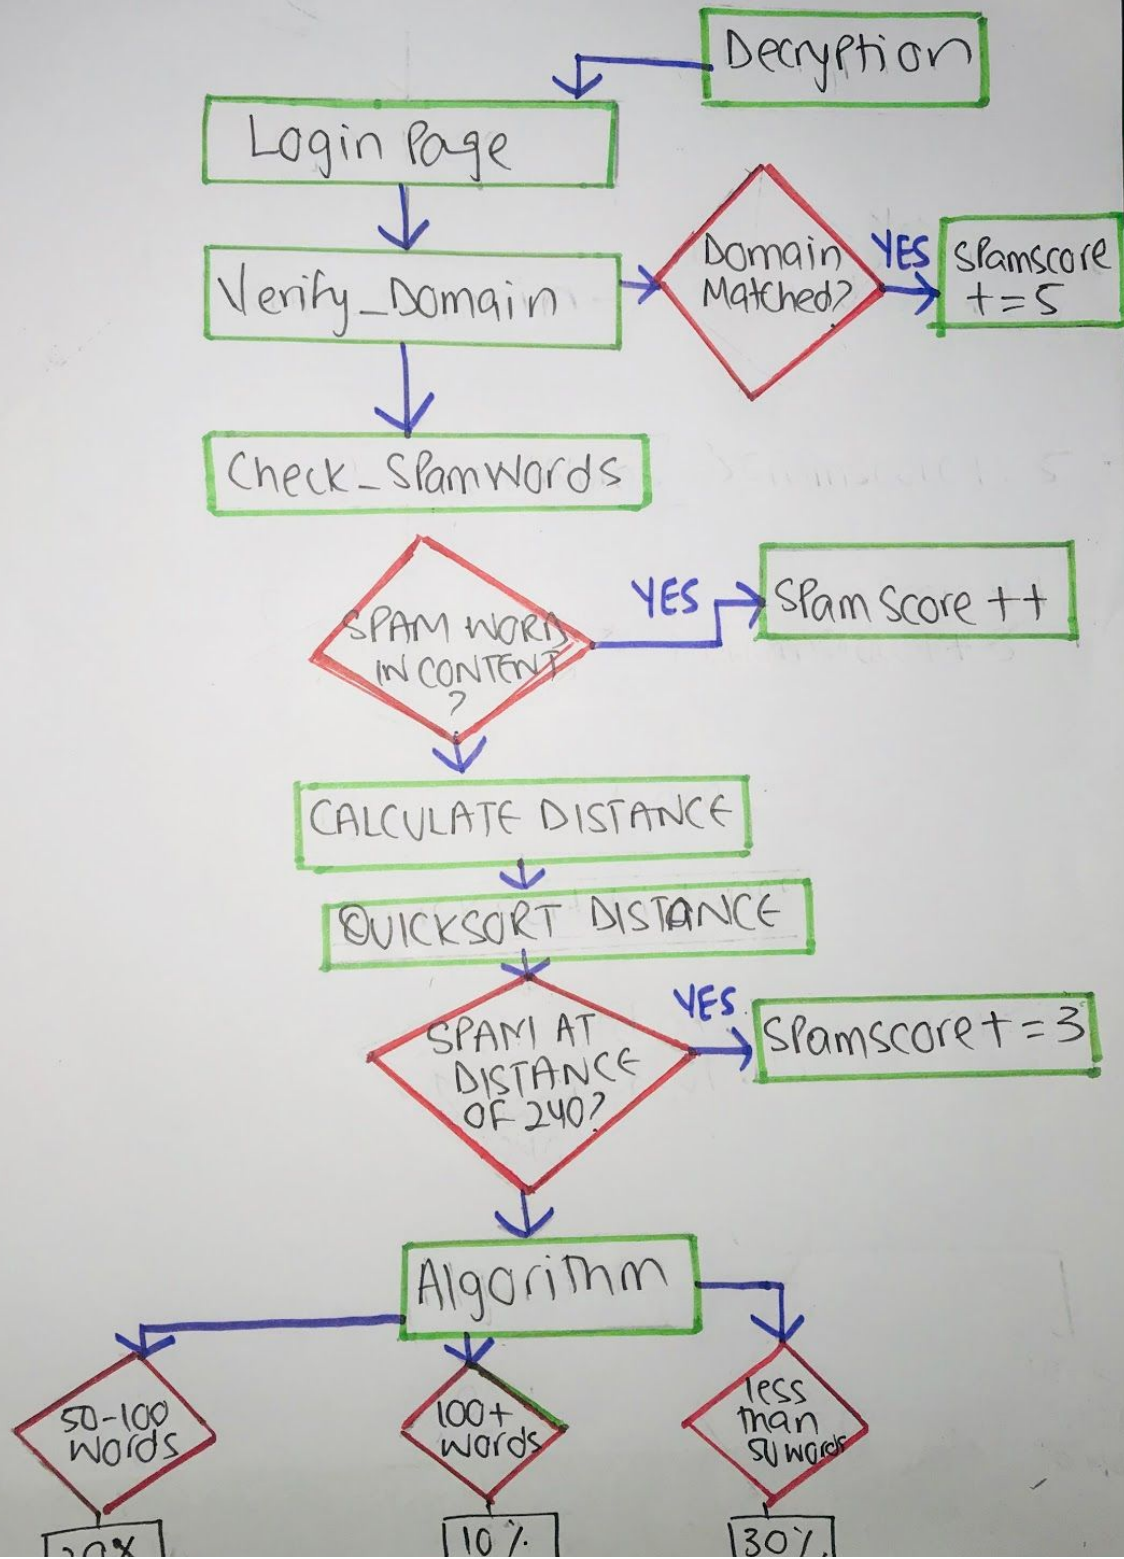 Decryption
Login Page
Verify_Domain
Domain
Matched?
YES
Spamscore
+=5
Check_SpamWords
SPAM WORD
IN CONTENT
?
YES
Spam Score ++
CALCULATE DISTANCE
QUICKSORT DISTANCE
SPAM AT
DISTANCE
OF 240?
YES
Spamscore+=3
Algorithm
50-100
words
100+
words
less
than
50 words
10%
30%